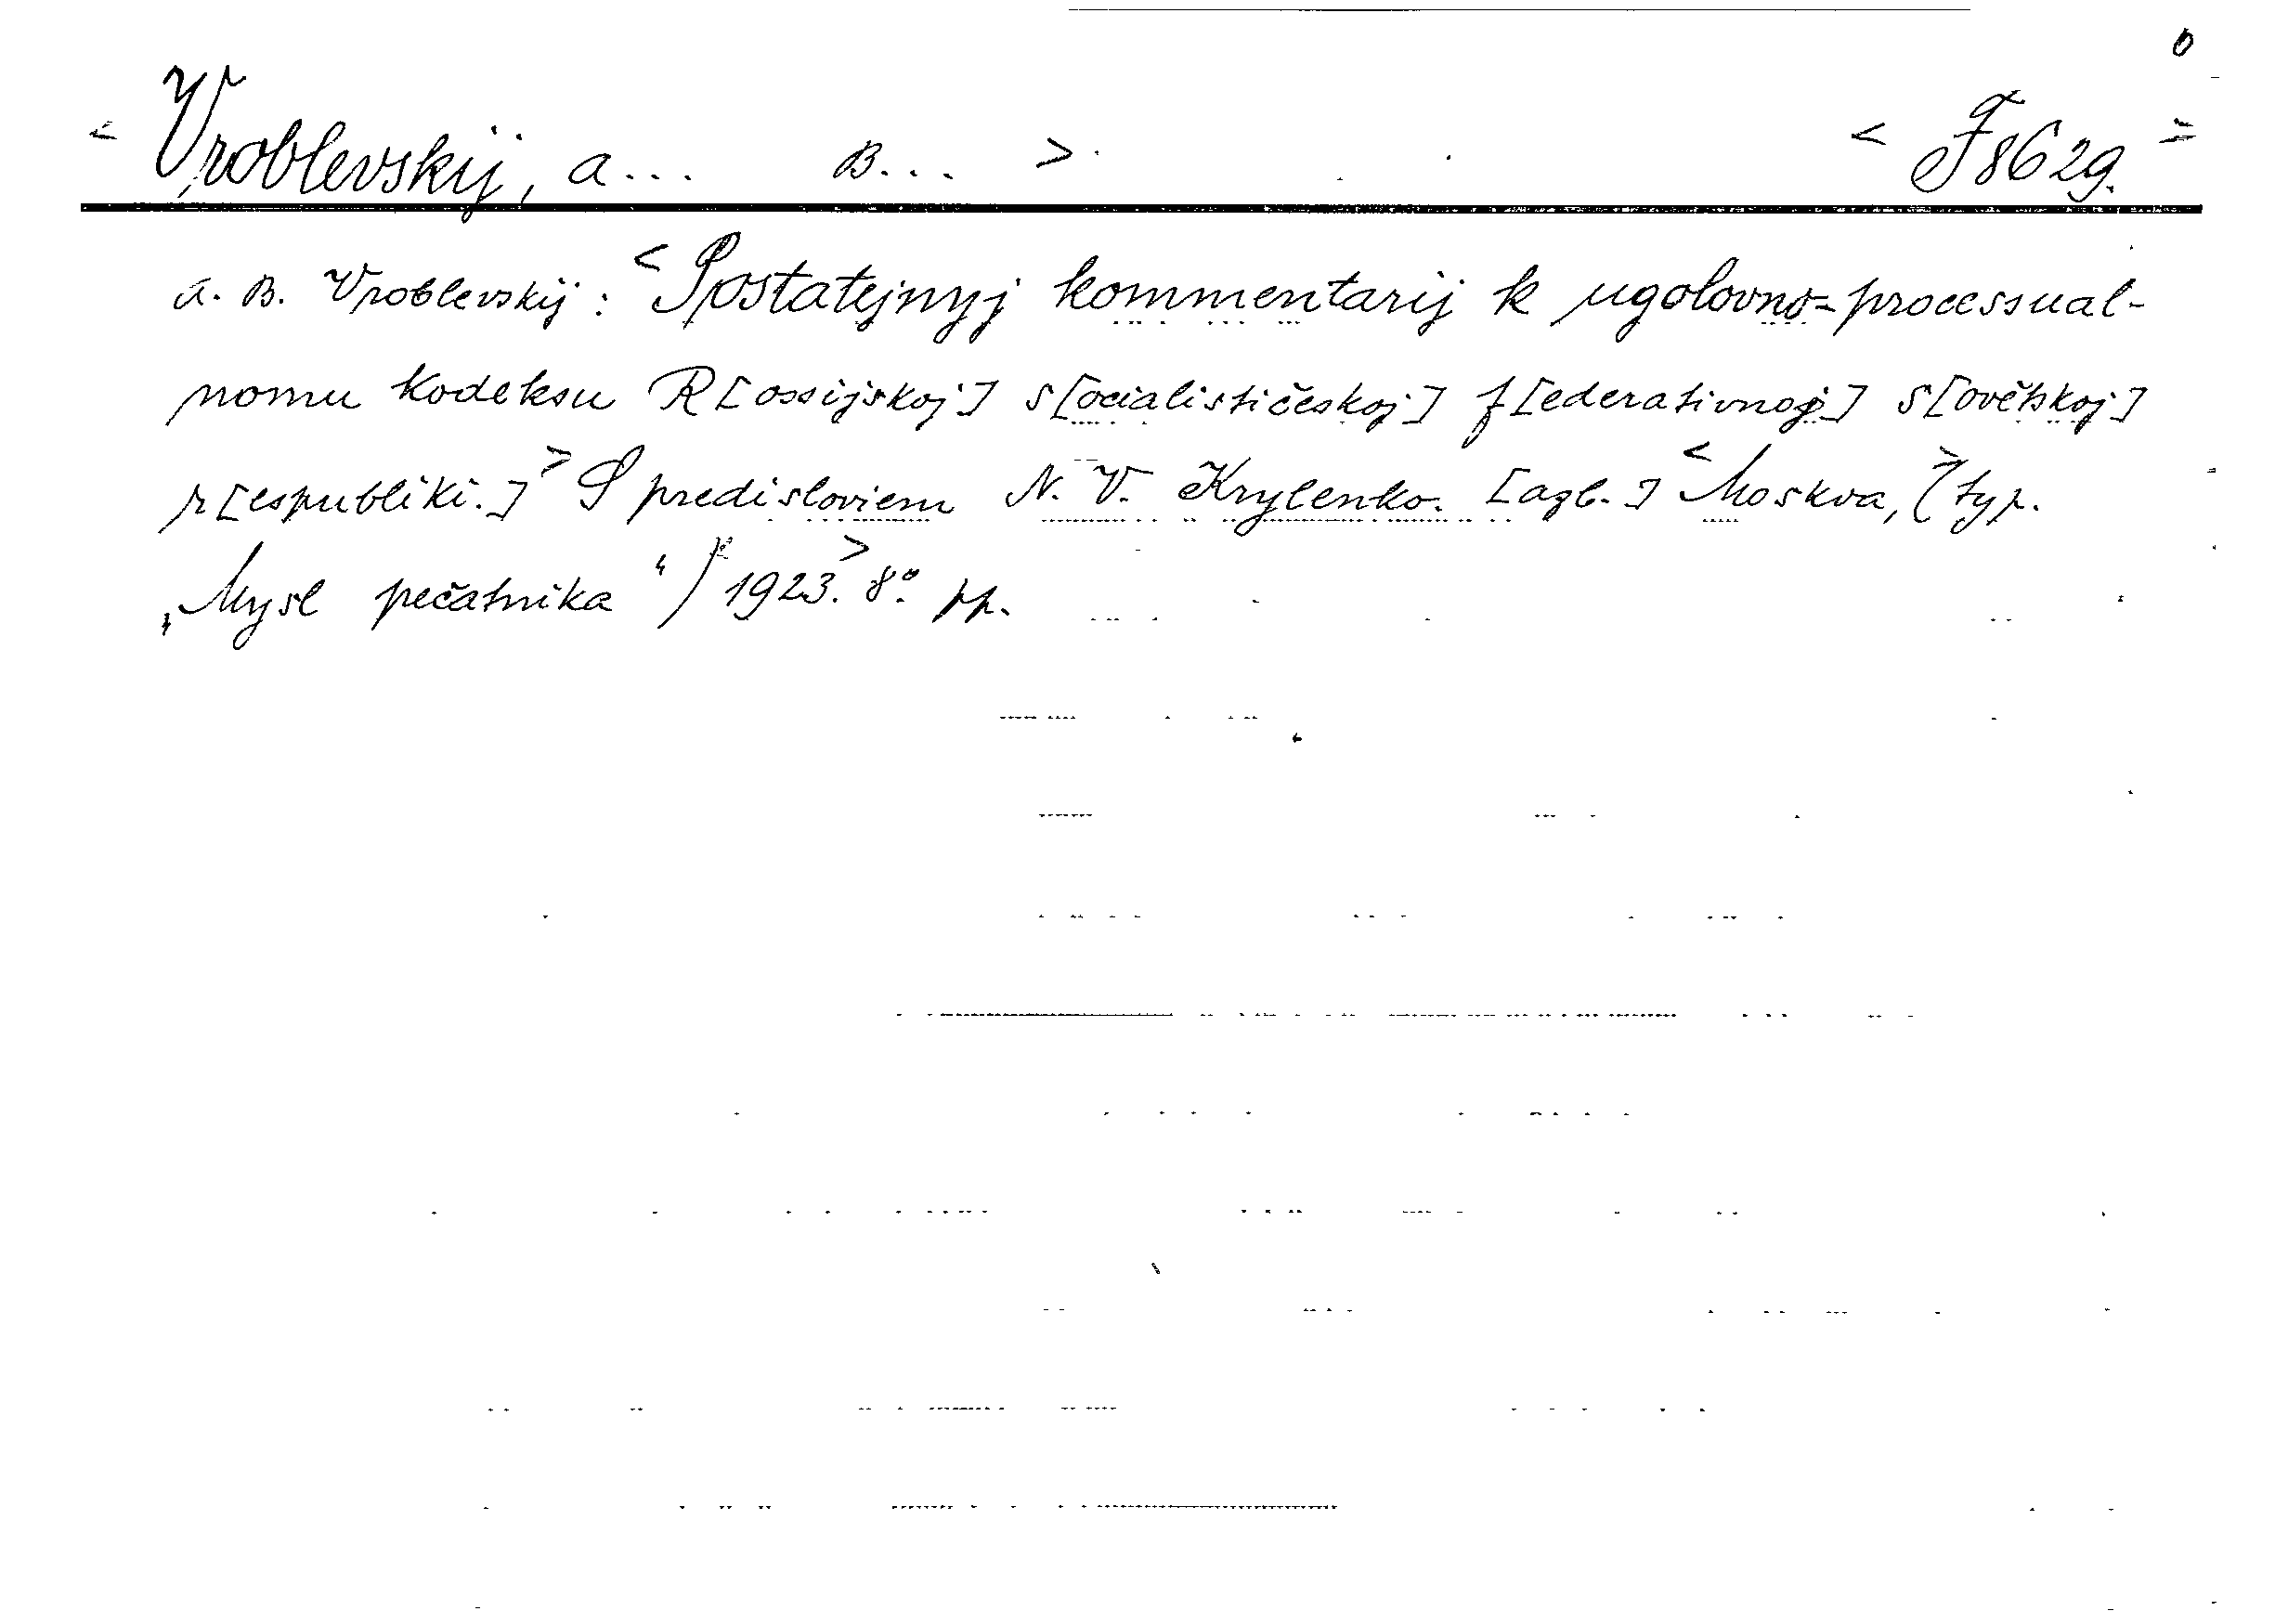 < Vroblevskij, A... B... > < F 8629. >
A. B. Vroblevskij: < Postatejnyj kommentarij k ugolovno-processual-
nomu kodeksu R[ossijskoj] s[ocialističeskoj] f[ederativnoj] s[ovětskoj]
r[espubliki.] > S predisloviem N. V. Krylenko. [azb.] < Moskva, (typ.
„Mysl pečatnika“) 1923. > 8°. pp.